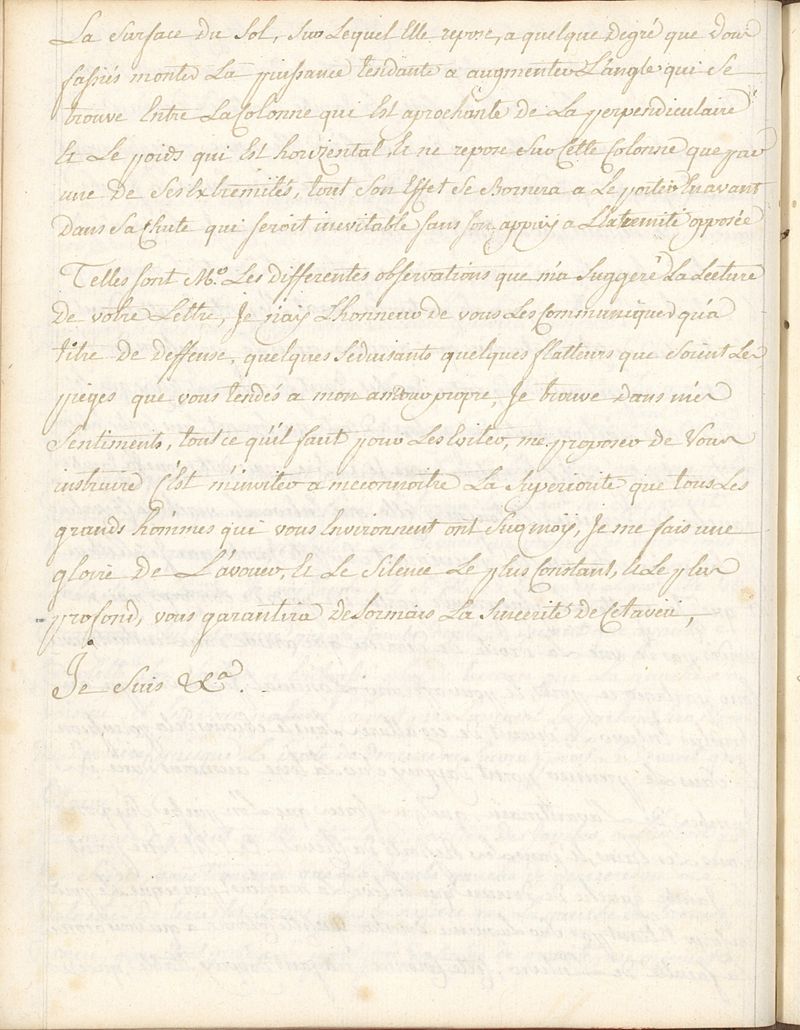 La Surface du Sol, Sur Lequel Elle repose, a quelque degré que vous
fassiés monter La puissance tendante a augmenter L'angle qui Se
trouve Entre La Colonne qui Est aprochante de La perpendiculaire
Et Le poids qui Est horizental, Et ne repose Sur Cette Colonne que par
une de Ses Extremités, tout Son Effet Se Bornera a Le porter En avant
dans Sa Chute qui seroit inevitable sans son appuy a L'Extremité opposée
Telles sont M.r Les differentes observations que m'a Suggeré La Lecture
de votre Lettre, Je n'ay L'honneur de vous Les Communiquer qu'a
titre de deffense, quelques Seduisants quelques flatteurs que soient Les
pieges que vous tendés a mon amour propre, Je trouve dans mes
Sentiments, tout ce qu'il faut pour Les Eviter, me proposer de Vous
instruire C'Est m'inviter a meconnoitre La Superiorité que tous Les
grands hommes qui vous Environnent ont Sur moy, Je me fais une
gloire de L'avouer, Et Le Silence Le plus Constant, Et Le plus
profond, vous garantira desormais La Sincerité de Cet aveu,
Je Suis &a.